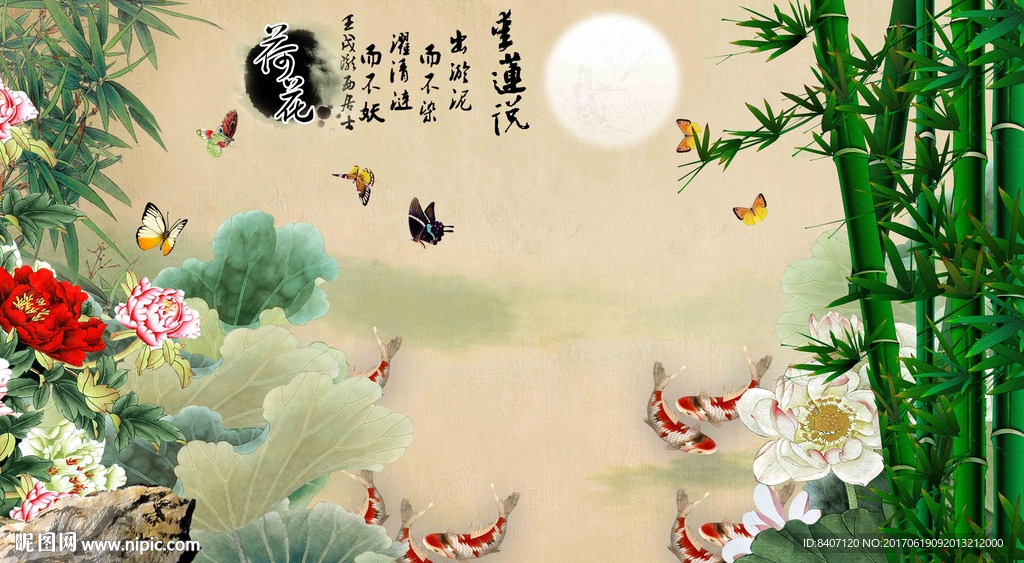 爱蓮说
出淤泥
而不染
濯清涟
而不妖
荷花
昵图网 www.nipic.com
ID:8407120 NO:20170619092013212000